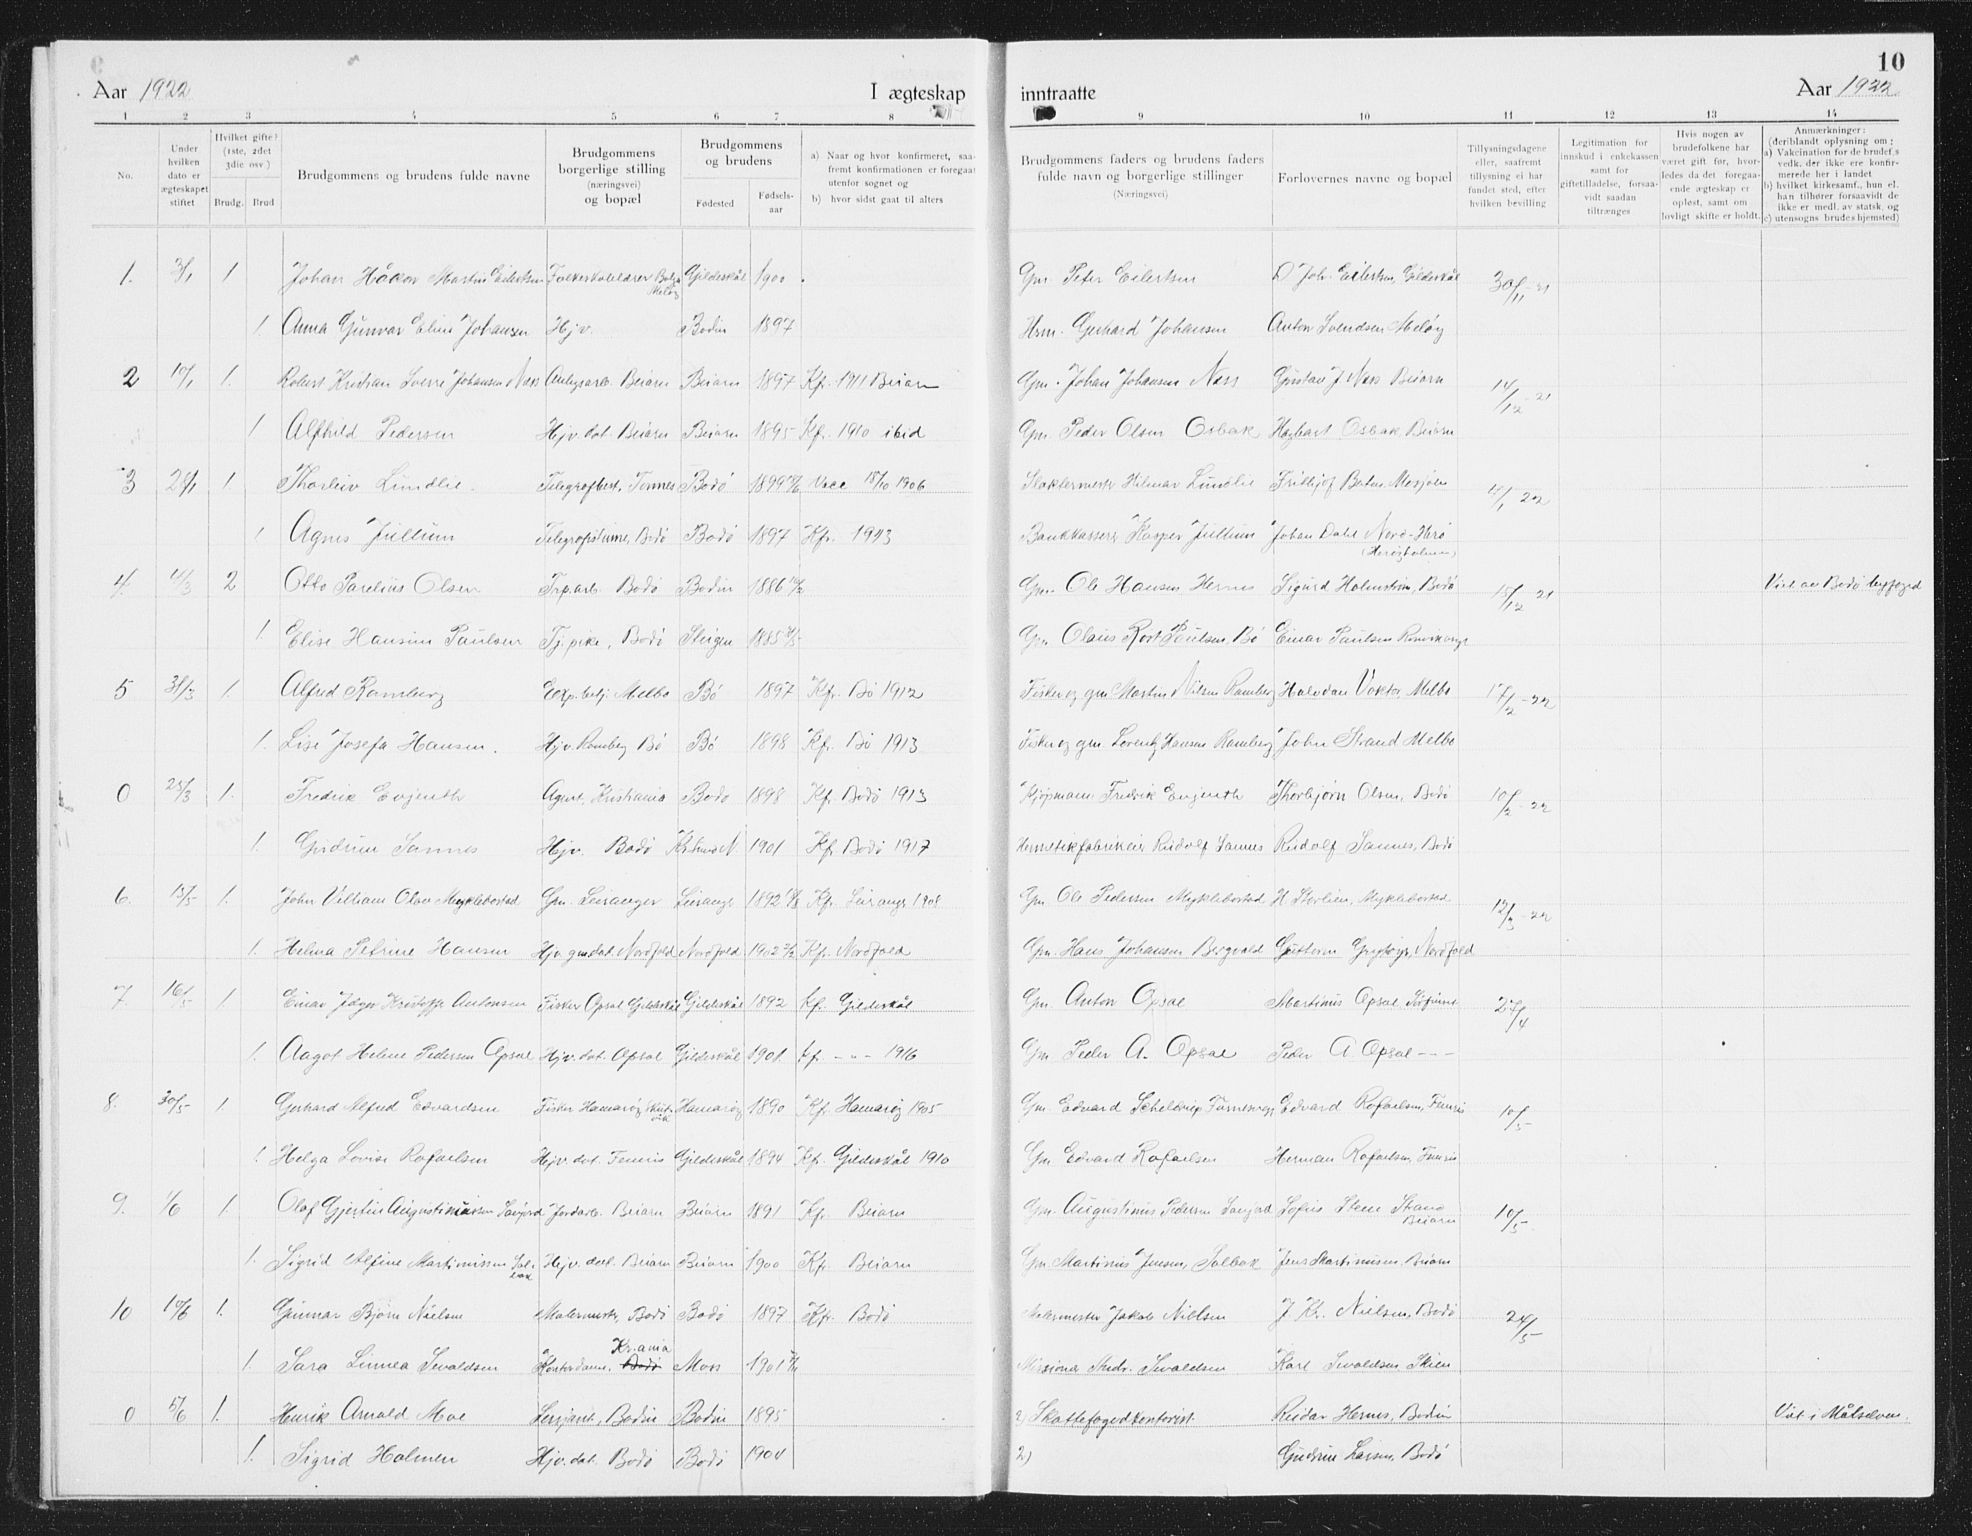 10
Aar 1922 I ægteskap inntraatte Aar 1922
1 2 3 4 5 6 7 8 9 10 11 12 13 14
No.
Under hvilken dato er ægteskapet stiftet
Hvilket gifte? (1ste, 2det 3die osv.)
Brudg. Brud
Brudgommens og brudens fulde navne
Brudgommens borgerlige stilling (næringsvei) og bopæl
Brudgommens og brudens
Fødested Fødsels-aar
a) Naar og hvor konfirmeret, saafremt konfirmationen er foregaat utenfor sognet og
b) hvor sidst gaat til alters
Brudgommens faders og brudens faders fulde navn og borgerlige stillinger (Næringsvei)
Forlovernes navne og bopæl
Tillysningsdagene eller, saafremt tillysning ei har fundet sted, efter hvilken bevilling
Legitimation for innskud i enkekassen samt for giftetilladelse, forsaavidt saadan tiltrænges
Hvis nogen av brudefolkene har været gift før, hvorledes da det foregaaende ægteskap er opløst, samt om lovligt skifte er holdt.
Anmærkninger: (deriblandt oplysning om: a) Vakcination for de brudef.s vedk. der ikke ere konfirmerede her i landet b) hvilket kirkesamf., hun el. han tilhører forsaavidt de ikke er medl. av statsk. og c) utensogns brudes hjemsted)
1. 3/1 1 Johan Håkon Martin Eilertsen Folkeskolelærer Meløy Gildeskål 1900 Gm. Peter Eilertsen Joh. Eilertsen, Gildeskål 30/11-21
1. Anna Gunvor Eline Johansen Hjv. Bodin 1897 Hrm. Gerhard Johansen Anton Svendsen Meløy
2 10/1 1. Robert Kristian Sverre Johansen Næss Anlegsarb. Beiarn Beiarn 1897 Kf. 1911 Beiarn Gm. Johan Johansen Næss Gustav J. Næss Beiarn 14/12-21
1 Alfhild Pedersen Hjv. dat. Beiarn Beiarn 1895 Kf. 1910 ibid Gm. Peder Olsen Osbak Hagbart Osbak, Beiarn
3 1 Thorleiv Lundlie Telegrafbest. Tonnes Bodø 1899 Vacc 18/10 1906 Hilmar Lundlie Frithjof Mosjøen 22
1 Agnes Jullum Bodø Bodø 1897 Kf. 1913 Bankkasserer Kasper Jullum Johan Dahl Nord-Herø
(Herøyholmen)
4. 2 Otto Parelius Olsen Trp.arb. Bodø Bodin 1886 Gm. Ole Hansen Hernes Sigurd Holmstrøm, Bodø 15/12 21 Viet av Bodø byfoged
1. Elise Hansine Paulsen Tj. pike, Bodø Steigen 1885 Gm. Olaus Paulsen, Bø Einar Paulsen
5 31/3 1. Alfred Ramberg Exp. betj. Melbo Bø 1897 Kf. Bø 1912 Fisker og gm Martin Nilsen Ramberg Halvdan Melbo 17/2-22
1. Lise Josefa Hansen. Hjv. Ramberg Bø Bø 1898 Kf. Bø 1913 Fisker og gm. Lorentz Hansen Ramberg John Strand Melbo
0 25/3 1. Fredrik Evjenth Agent, Kristiania Bodø 1898 Kf. Bodø 1913 Kjøpmann Fredrik Evjenth Thorbjørn Olsen, Bodø 10/2-22
1. Gudrun Sannes Hjv. Bodø 1901 Kf. Bodø 1917 Hermetikfabrikeier Rudolf Sannes Rudolf Sannes, Bodø
6. 13/5 1. John Villiam Olav Myklebostad Gm. Leiranger 1892 Kf. 1908 Gm. Ole Pedersen Myklebostad H Storlien, Myklebostad 12/3-22
1. Helma Petrine Hansen Hjv. gm.dat. Nordfold Nordfold 1902 Kf. Nordfold Gm. Hans Johansen Bergvold Guttorm Nordfold
7. 16/5 1 Einar Antonsen Fisker Opsal Gildeskål Gildeskål 1892 Kf. Gildeskål Gm. Anton Opsal Martinus Opsal 27/4
1. Aagot Helene Pedersen Opsal Hjv. dat. Opsal Gildeskål 1901 Kf. -"- 1916 Gm Peder A. Opsal Peder A Opsal - - -
8. 30/5 1. Gerhard Alfred Edvardsen Fisker Hamarøy Hamarøy 1890 Kf. Hamarøy 1905 Gm. Edvard Schelderup Edvard Rafaelsen, Femris 10/5
1. Helga Lovise Rafaelsen Hjv. dat. Femris Gildeskål 1894 Kf. Gildeskål 1910 Gm Edvard Rafaelsen Herman Rafaelsen, Femris
9. 1/6 1. Olaf Gjertin Augustinussen Jordarb. Beiarn Beiarn 1891 Kf. Beiarn Gm. Augustinus Pedersen Sofus Steen Strand
Beiarn 10/5
1. Sigrid Alfine Martinussen Solbak Hjv. dat. Beiarn Beiarn 1900 Kf. Beiarn Gm. Martinus Jensen, Solbak Jens Martinusen, Beiarn
10 10/6 1. Gunnar Bjørn Nielsen Malermester, Bodø Bodø 1897 Kf. Bodø Malermester Jakob Nielsen J. Kr. Nielsen, Bodø 24/5
1. Sara Linnea Sivaldsen Kontordame, Bodø Kr.ania Moss 1901 Missionær Andr. Sivaldsen Karl Sivaldsen, Skien
0 5/6 1. Henrik Arnold Moe Sersjant, Bodin Bodin 1895 2) Skattefogedkontorist. Reidar Hernes, Bodin Viet i Målselven.
1. Sigrid Holmen Hjv. dat. Bodø Bodø 1904 2) Gudrun Larsen, Bodø